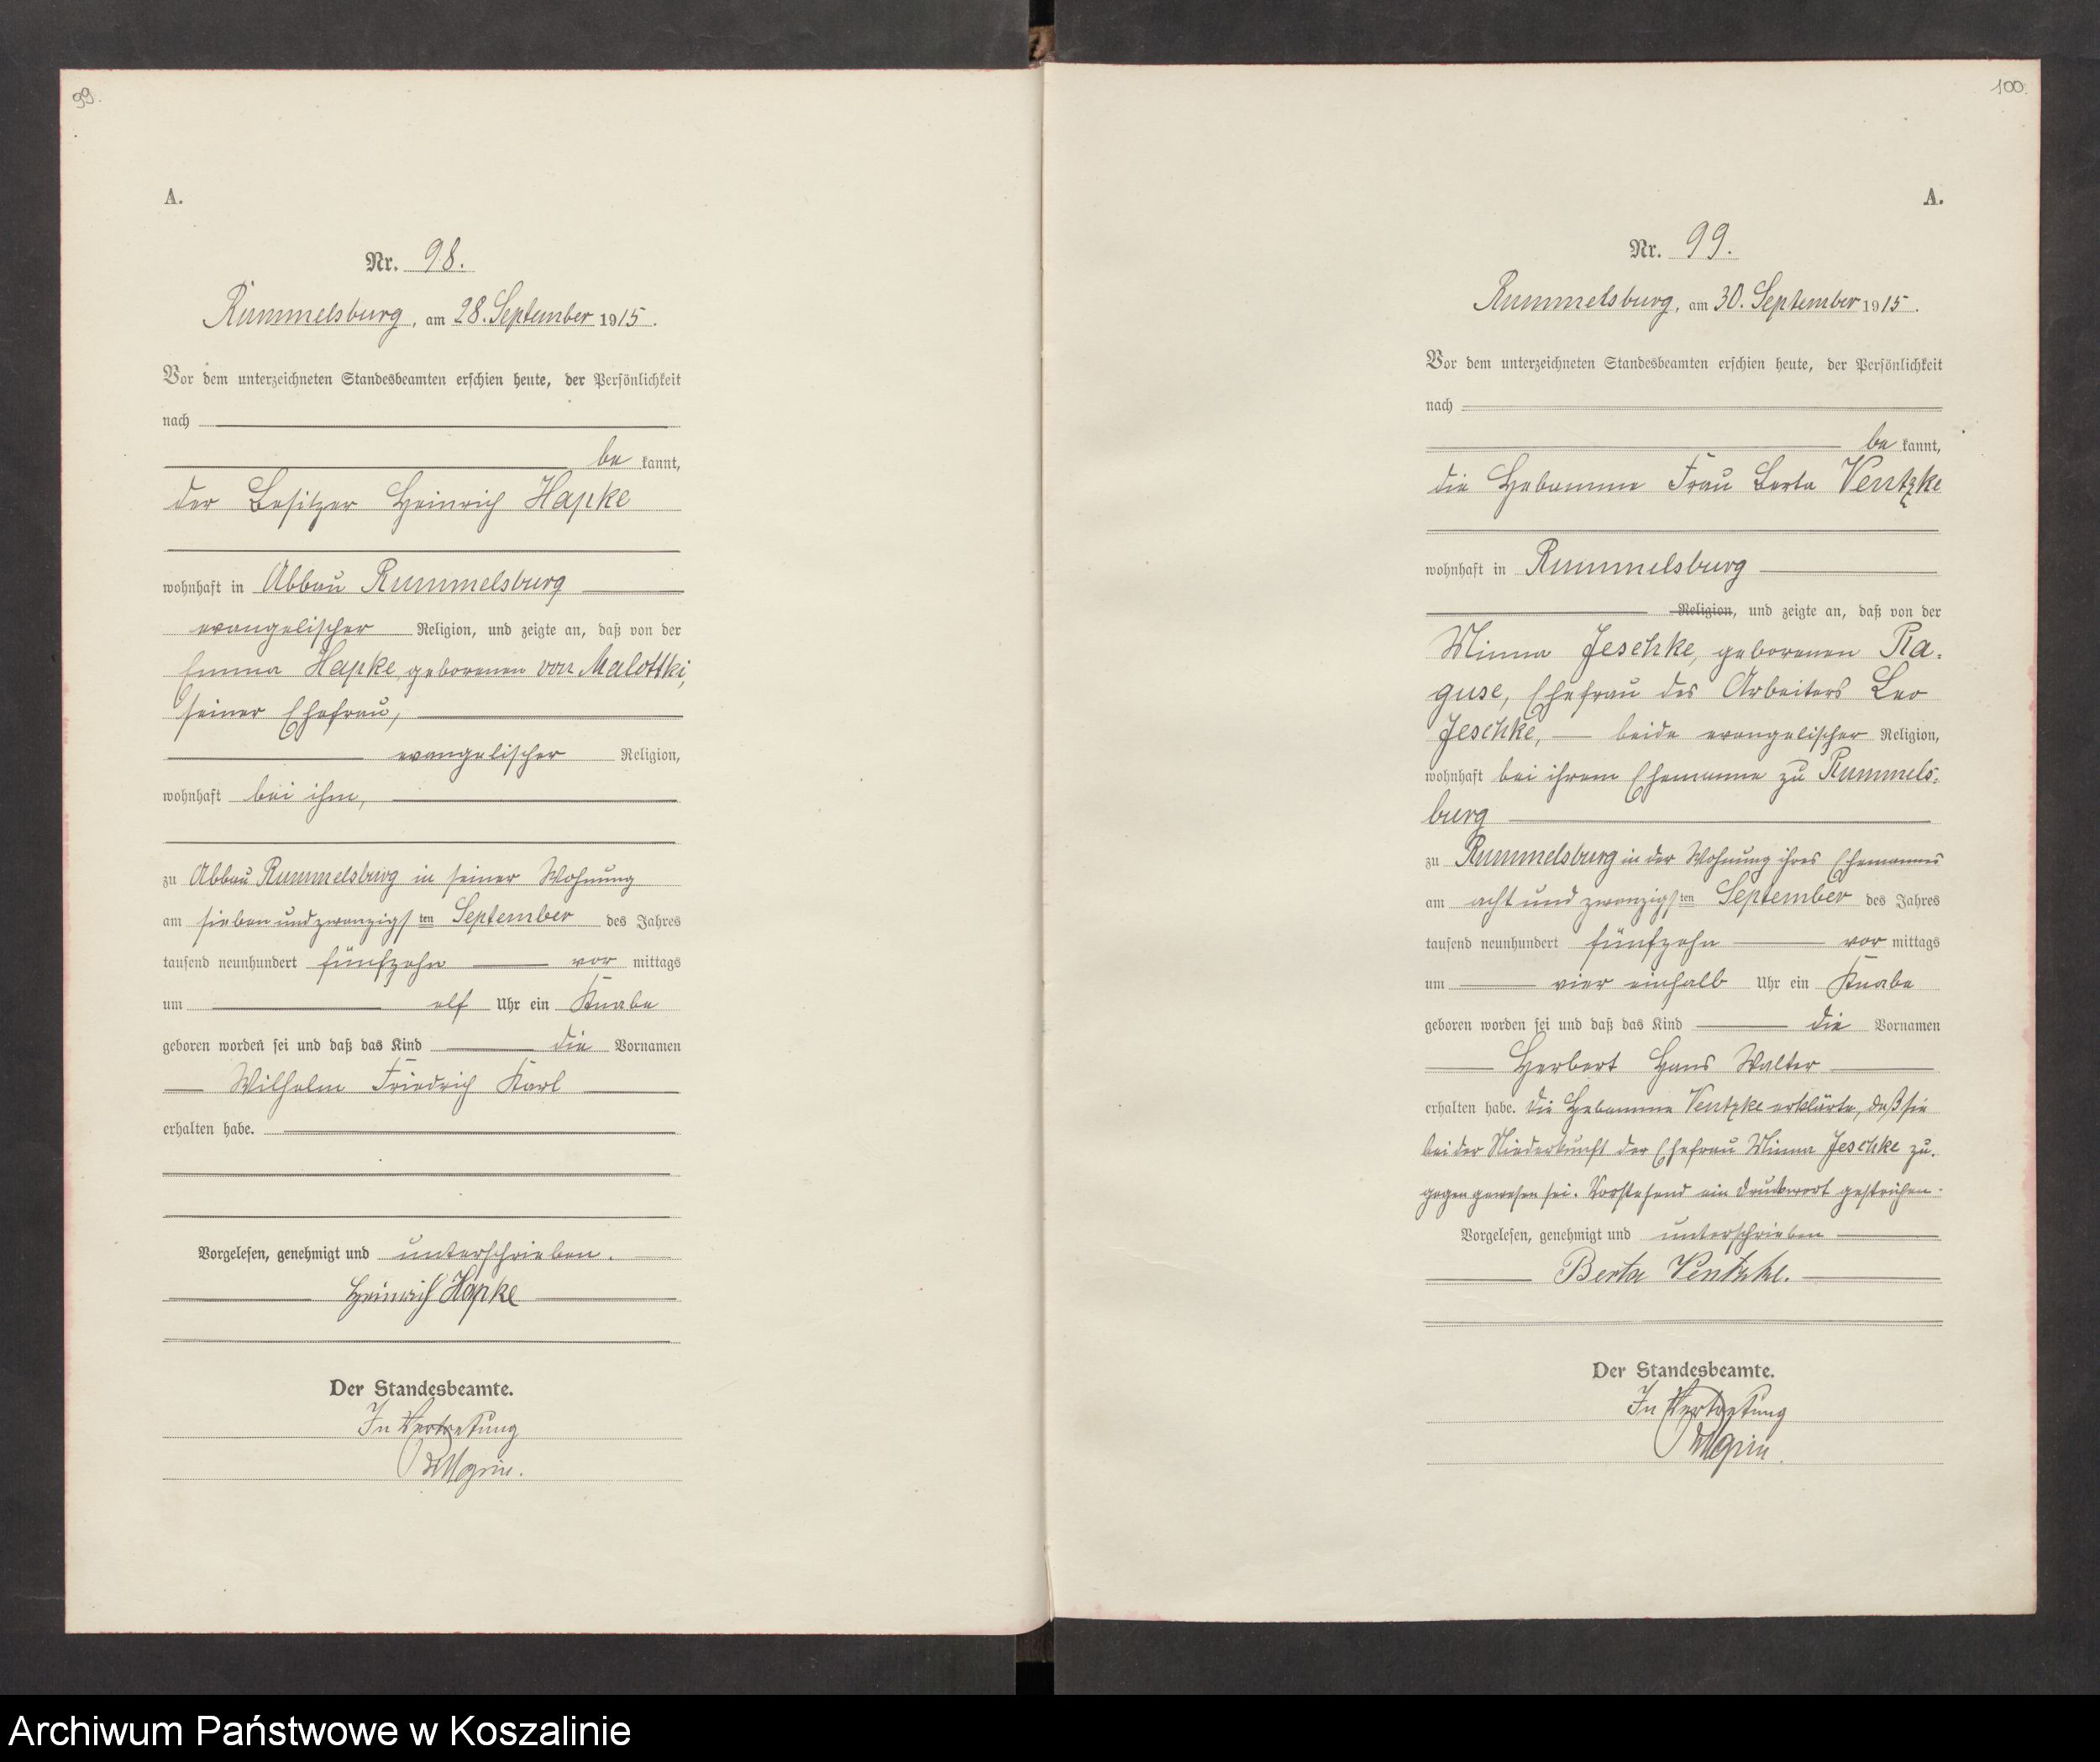 99.
A.
Nr. 98.
Rummelsburg, am 28. September 1915.
Vor dem unterzeichneten Standesbeamten erschien heute, der Persönlichkeit
nach
be kannt,
der Besitzer Heinrich Hapke
wohnhaft in Abbau Rummelsburg
evangelischer Religion, und zeigte an, daß von der
Emma Hapke, geborenen von Malottki,
seiner Ehefrau,
evangelischer Religion,
wohnhaft bei ihm,
zu Abbau Rummelsburg in seiner Wohnung
am sieben und zwanzigsten September des Jahres
tausend neunhundert fünfzehn vor mittags
um elf Uhr ein Knabe
geboren worden sei und daß das Kind die Vornamen
Wilhelm Friedrich Karl
erhalten habe.
Vorgelesen, genehmigt und unterschrieben.
Heinrich Hapke
Der Standesbeamte.
In Vertretung
100.
A.
Nr. 99.
Rummelsburg, am 30. September 1915.
Vor dem unterzeichneten Standesbeamten erschien heute, der Persönlichkeit
nach
be kannt,
die Hebamme Frau Berta Ventzke
wohnhaft in Rummelsburg
Religion, und zeigte an, daß von der
Minna Jeschke, geborenen Ra-
guse, Ehefrau des Arbeiters Leo
Jeschke, beide evangelischer Religion,
wohnhaft bei ihrem Ehemanne zu Rummels-
burg
zu Rummelsburg in der Wohnung ihres Ehemannes
am acht und zwanzigsten September des Jahres
tausend neunhundert fünfzehn vor mittags
um vier einhalb Uhr ein Knabe
geboren worden sei und daß das Kind die Vornamen
Herbert Hans Walter
erhalten habe. Die Hebamme Ventzke erklärte, daß sie
bei der Niederkunft der Ehefrau Minna Jeschke zu-
gegen gewesen sei. Vorstehend ein Druckwort gestrichen.
Vorgelesen, genehmigt und unterschrieben
Berta Ventzke.
Der Standesbeamte.
In Vertretung
Archiwum Państwowe w Koszalinie